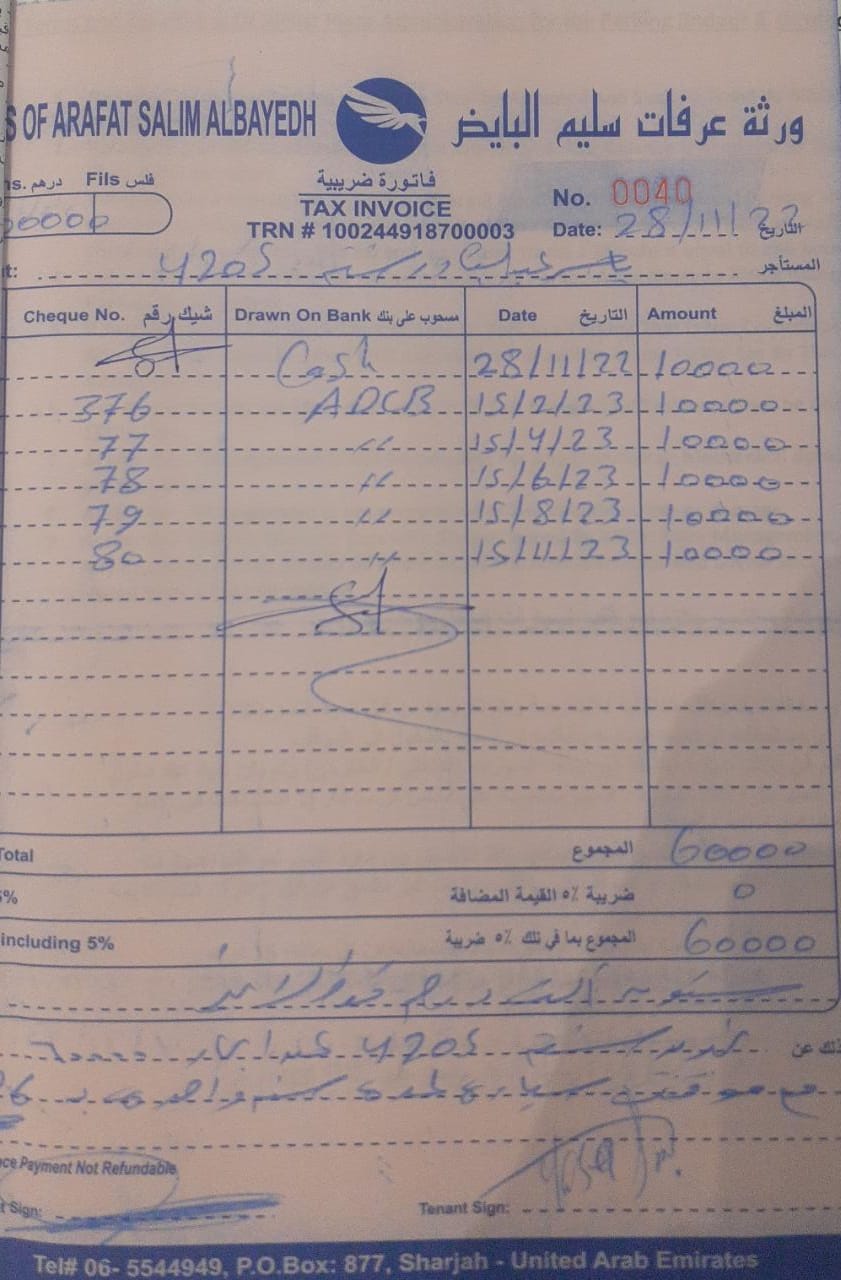 S OF ARAFAT SALIM ALBAYEDH ورثة عرفات سليم البايض
درهم Fils فلس
فاتورة ضريبية
TAX INVOICE
TRN # 100244918700003
No. 0040
Date: 28/11/22 التاريخ
4205 المستأجر
Cheque No. شيك رقم Drawn On Bank مسحوب على بنك Date التاريخ Amount المبلغ
Cash 28/11/22 10000
376 ADCB 15/2/23 10000
77 " 15/4/23 10000
78 " 15/6/23 10000
79 " 15/8/23 10000
80 " 15/11/23 10000
Total المجموع 60000
5% ضريبة ٥٪ القيمة المضافة 0
including 5% المجموع بما في ذلك ٥٪ ضريبة 60000
ستون ألف درهم
ذلك عن 4205
Payment Not Refundable
Sign:
Tenant Sign:
Tel# 06- 5544949, P.O.Box: 877, Sharjah - United Arab Emirates